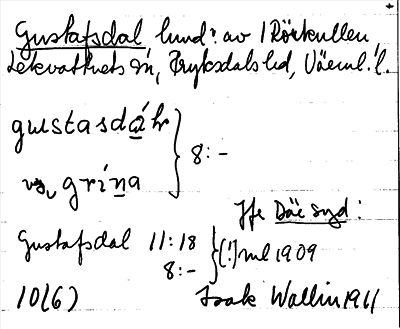 Gustafsdal lund? av 1 Rörkullen
Lekvattnets sn, Fryksdals hd, Värml. l.
gustasdáhr
vs, grína } 8:-
Jfe Däe syd:
Gustafsdal 11:18
8:- } (!) ml 1909
10(6) Isak Wallin 1911